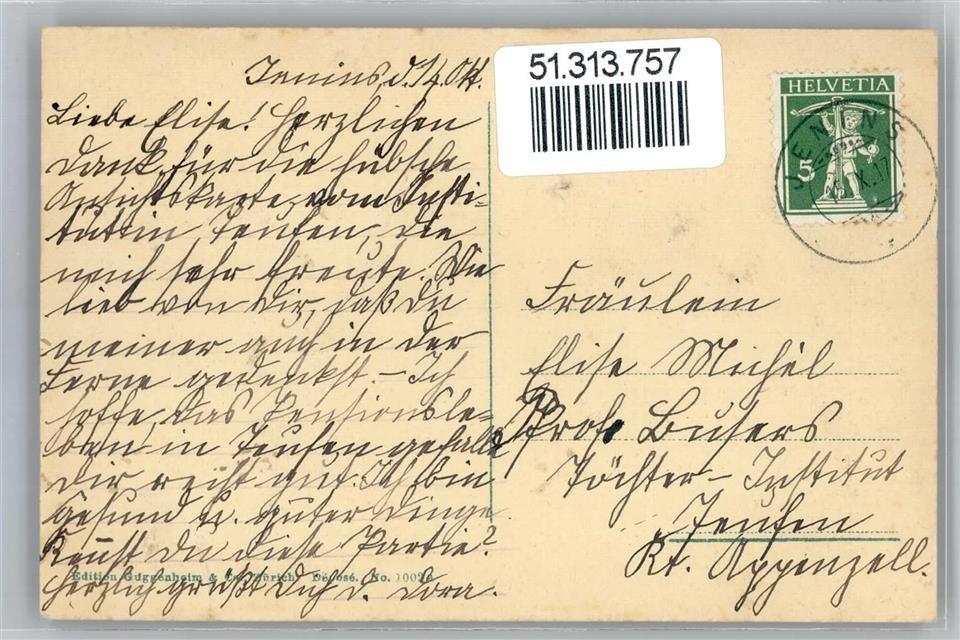 Jenins, d. 14. Okt.
Liebe Elise! Herzlichen
Dank für die hübsche
Ansichtskarte vom Insti-
tut in Teufen, die
mich sehr freute. Wie
lieb von Dir, daß Du
meiner auch in der
Ferne gedenkst. – Ich
hoffe, das Pensionsle-
ben in Teufen gefalle
Dir recht gut. Ich bin
gesund u. guter Dinge.
Kennst Du diese Partie?
Herzlich grüßt Dich d. Dora.
Edition Guggenheim & Co., Zürich. Déposé. No.
51.313.757
HELVETIA
5
JENINS
Fräulein
Elise Michel
Prof. Busers
Töchter-Institut
Teufen
Kt. Appenzell.